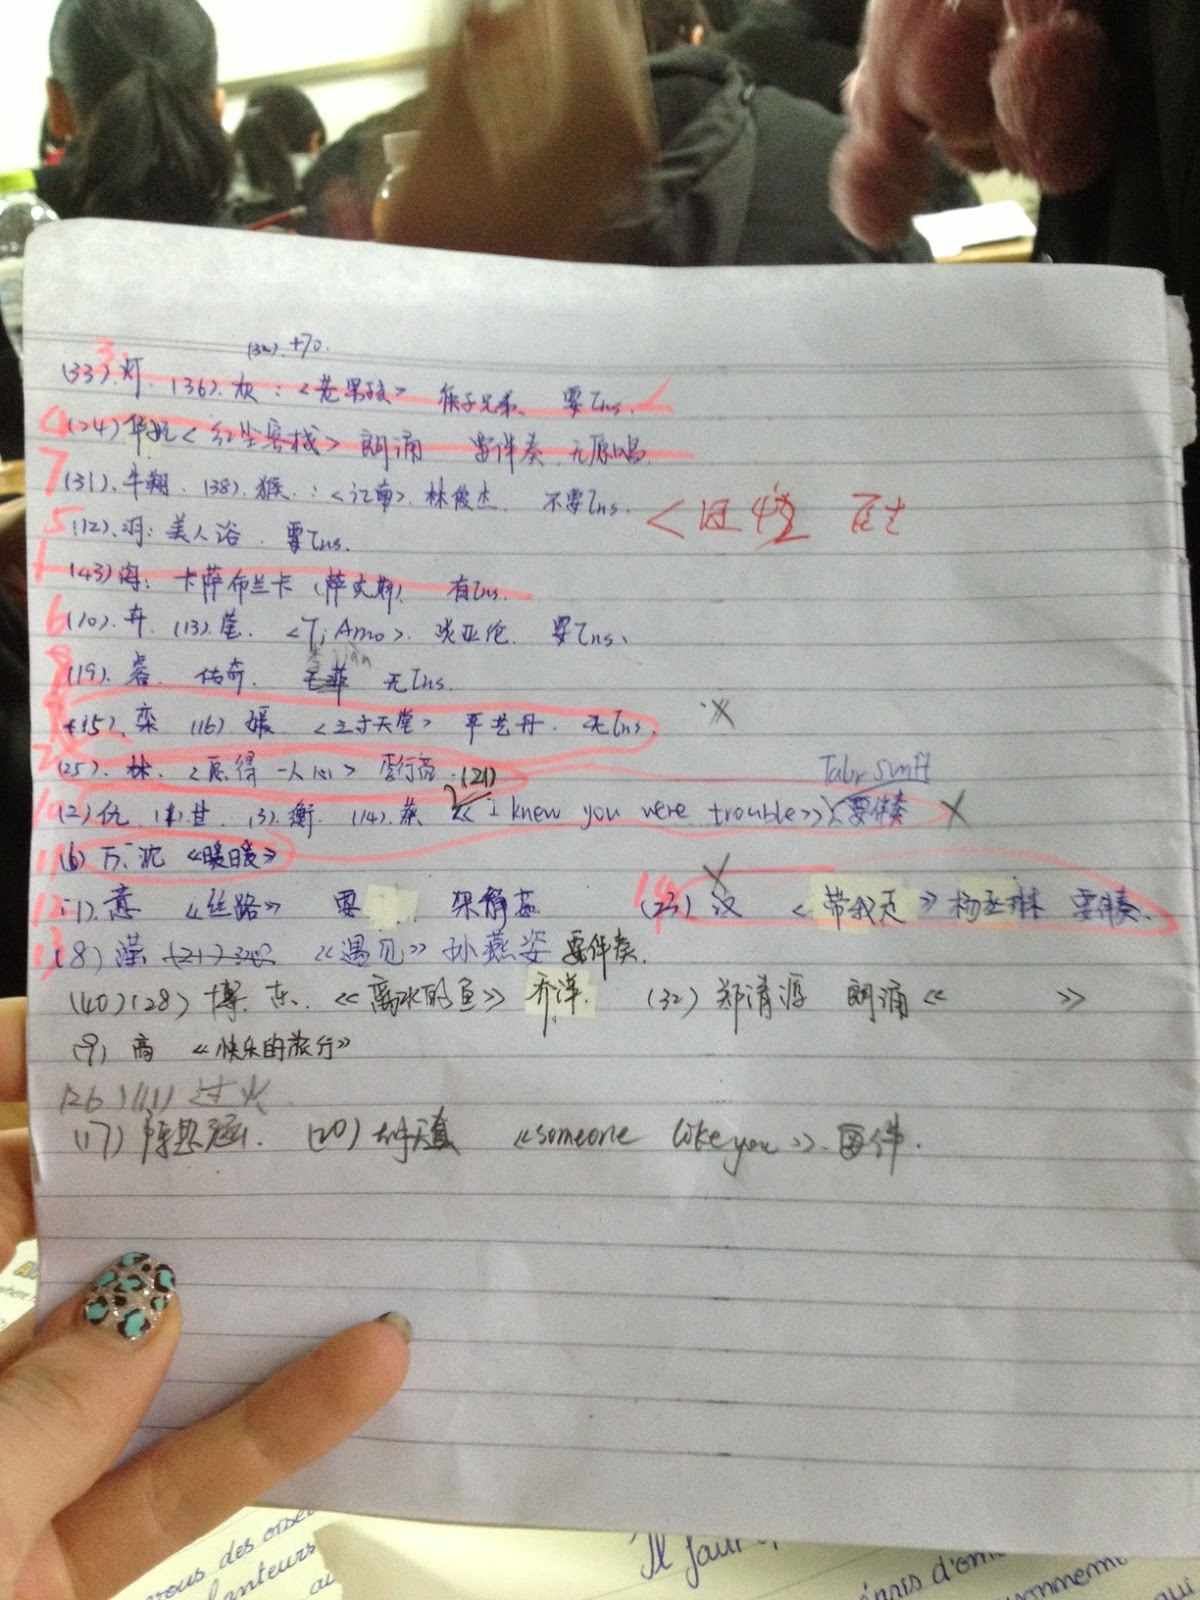 (32). +70.
3. (33). 灯. (36). 灰: <老男孩> 筷子兄弟. 要Ins.
4 (24) 华 <红尘客栈> 朗诵 要伴奏, 无原唱.
7 (31). 牛翔. (38). 猴: <江南>. 林俊杰. 不要Ins.
5 (12). 羽: 美人浴. 要Ins.
1 (43) 海: 卡萨布兰卡 (萨克斯). 有Ins.
6 (10). 卉. (13). 莹. <Ti Amo>. 炎亚纶. 要Ins.
8 (19). 睿. 传奇. 王菲 无Ins.
(15). 栾 (16). 媛. <三寸天堂> 严艺丹. 无Ins.
2 (25). 林. <愿得一人心> 李行亮. (21)
10 (2) 仇. 甘. (3). 衡. (14). 蔡 《i knew you were trouble》 要伴奏
11 (6) 万. 沈 《暖暖》
12 (1). 意 《丝路》 要 梁静茹 14 (23) 汉 <带我走》 杨丞琳 要伴奏.
13 (8) 藻 (21) 《遇见》 孙燕姿 要伴奏.
(40) (28) 博. 东. 《离水的鱼》 乔洋. (32) 郑清源 朗诵《 》
(9) 高 《快乐的旅行》
(26) (11) 过火
(17) (20) 《someone like you》. 要伴.
vous des oise
lanteurs
au
Il faur
d'om
onnement
qui